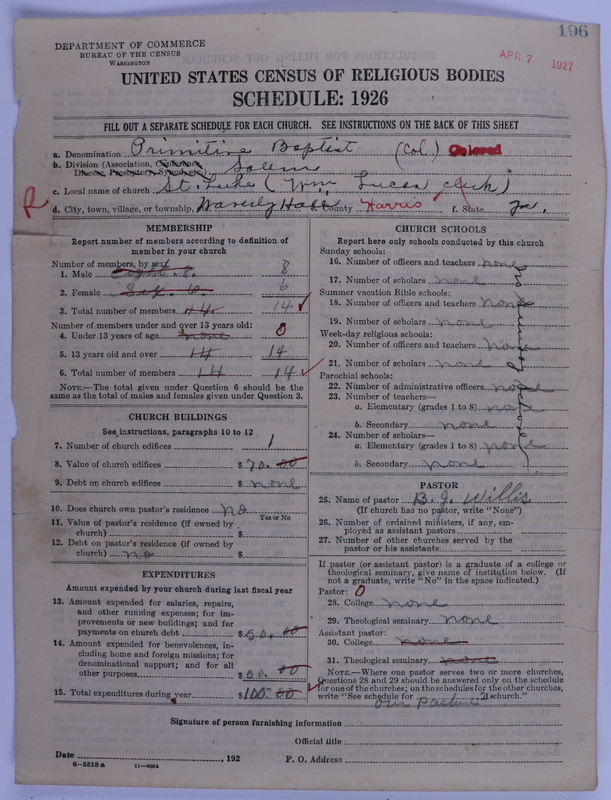 196
DEPARTMENT OF COMMERCE
BUREAU OF THE CENSUS
WASHINGTON
APR 7 1927
UNITED STATES CENSUS OF RELIGIOUS BODIES
SCHEDULE: 1926
FILL OUT A SEPARATE SCHEDULE FOR EACH CHURCH. SEE INSTRUCTIONS ON THE BACK OF THIS SHEET
a. Denomination Primitive Baptist (Col.) Colored
b. Division (Association, Conference, Salem
Diocese, Presbytery, Synod, etc.)
c. Local name of church St. Luke (Wm Lucas clerk)
R d. City, town, village, or township, Waverly Hall e. County Harris f. State Ga.
MEMBERSHIP
Report number of members according to definition of
member in your church
Number of members, by sex:
1. Male Eight. 8. 8
2. Female Six. 6 6
3. Total number of members 14 14
Number of members under and over 13 years old:
4. Under 13 years of age none 0
5. 13 years old and over 14 14
6. Total number of members 14 14
NOTE.—The total given under Question 6 should be
same as the total of males and females given under Question 3.
CHURCH BUILDINGS
See instructions, paragraphs 10 to 12
7. Number of church edifices 1
8. Value of church edifices $ 70.00
9. Debt on church edifices $ none
10. Does church own pastor's residence no
Yes or No
11. Value of pastor's residence (if owned by
church) $
12. Debt on pastor's residence (if owned by
church) no $
EXPENDITURES
Amount expended by your church during last fiscal year
13. Amount expended for salaries, repairs,
and other running expenses; for im-
provements or new buildings; and for
payments on church debt $ 50.00
14. Amount expended for benevolences, in-
cluding home and foreign missions; for
denominational support; and for all
other purposes $ 50.00
15. Total expenditures during year $ 100.00
CHURCH SCHOOLS
Report here only schools conducted by this church
Sunday schools:
16. Number of officers and teachers none
17. Number of scholars none
Summer vacation Bible schools:
18. Number of officers and teachers none
19. Number of scholars none
Week-day religious schools:
20. Number of officers and teachers none
21. Number of scholars none
Parochial schools:
22. Number of administrative officers none
23. Number of teachers—
a. Elementary (grades 1 to 8) none
b. Secondary none
24. Number of scholars—
a. Elementary (grades 1 to 8) none
b. Secondary none
PASTOR
25. Name of pastor B. J. Willis
(If church has no pastor, write "None")
26. Number of ordained ministers, if any, em-
ployed as assistant pastors
27. Number of other churches served by the
pastor or his assistants
If pastor (or assistant pastor) is a graduate of a college or
theological seminary, give name of institution below. (If
not a graduate, write "No" in the space indicated.)
Pastor: 0
28. College none
29. Theological seminary none
Assistant pastor:
30. College none
31. Theological seminary none
NOTE.—Where one pastor serves two or more churches,
Questions 28 and 29 should be answered only on the schedule
for one of the churches; on the schedules for the other churches,
write "See schedule for church."
our Pastor
Signature of person furnishing information
Official title
Date , 192 P. O. Address
8—5518 a 11—9034